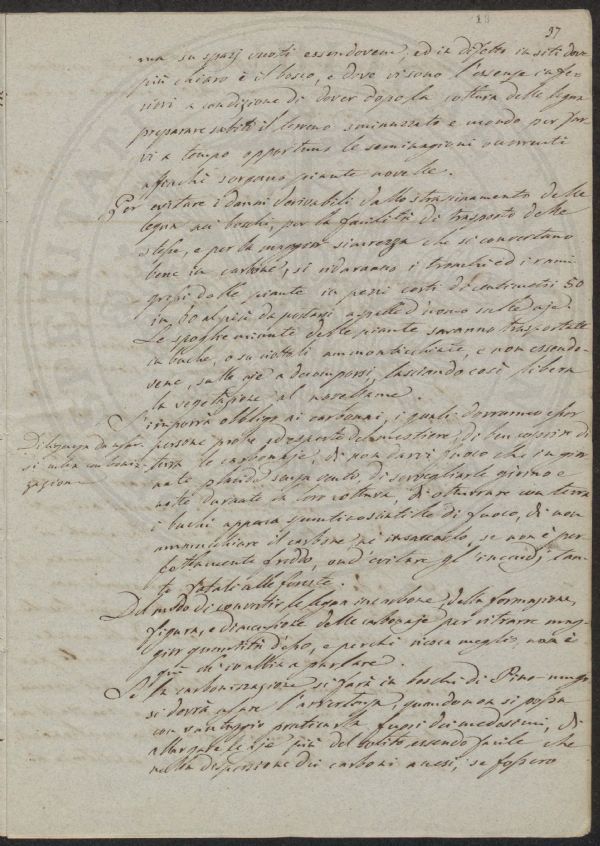 37
ma su spazj vuoti essendovene, ed in difetto in siti dove
più chiaro è il bosco, e dove vi sono l'essenze infe-
riori a condizione di dover dopo la cottura delle legna
preparare subito il terreno sminuzzato e mondo per far
vi a tempo opportuno le seminagioni occorrenti
affinchè sorgano piante novelle.
Per evitare i danni derivabili dallo strascinamento delle
legna nei boschi, per la facilità di trasporto delle
stesse, e per la maggior sicurezza che si convertano
bene in carbone, si ridurranno i tronchi ed i rami
grossi delle piante in pezzi corti di centimetri 50
in 60 al più da portarsi a spalle d'uomo sulle aje.
Le spoglie minute delle piante saranno trasportate
in buche, o su viottoli ammonticchiate, e non essendo-
vene, sulle aje a decomporsi, lasciando così libera
la vegetazione al novellame.
Diligenza da usar-
si nella carboniz-
zazione
S'imporrà obbligo ai carbonai, i quali dovranno esser
persone probe ed esperte del mestiere, di ben coprire di
terra le carbonaje, di non darvi fuoco che in gior
nate placide senza vento, di sorvegliarle giorno e
notte durante la loro cottura, di otturare con terra
i buchi appena
ammucchiare il carbone nè insaccarlo, se non è per
fettamente freddo, ond'evitare gl'incendj tan-
to fatali alle foreste.
Del modo di convertir le legna in carbone, della formazione,
figura, e dimensione delle carbonaje per ritrarre mag-
gior quantità d'esso, e perchè riesca meglio non è
quì che io abbia a parlare.
Se la carbonizzazione si farà in boschi di Pino-mugo
si dovrà usare l'avvertenza, quando non si possa
con vantaggio praticarla fuori dei medesimi, di
allargare le aje più del solito, essendo facile che
nella dispersione dei carboni accesi, se fossero